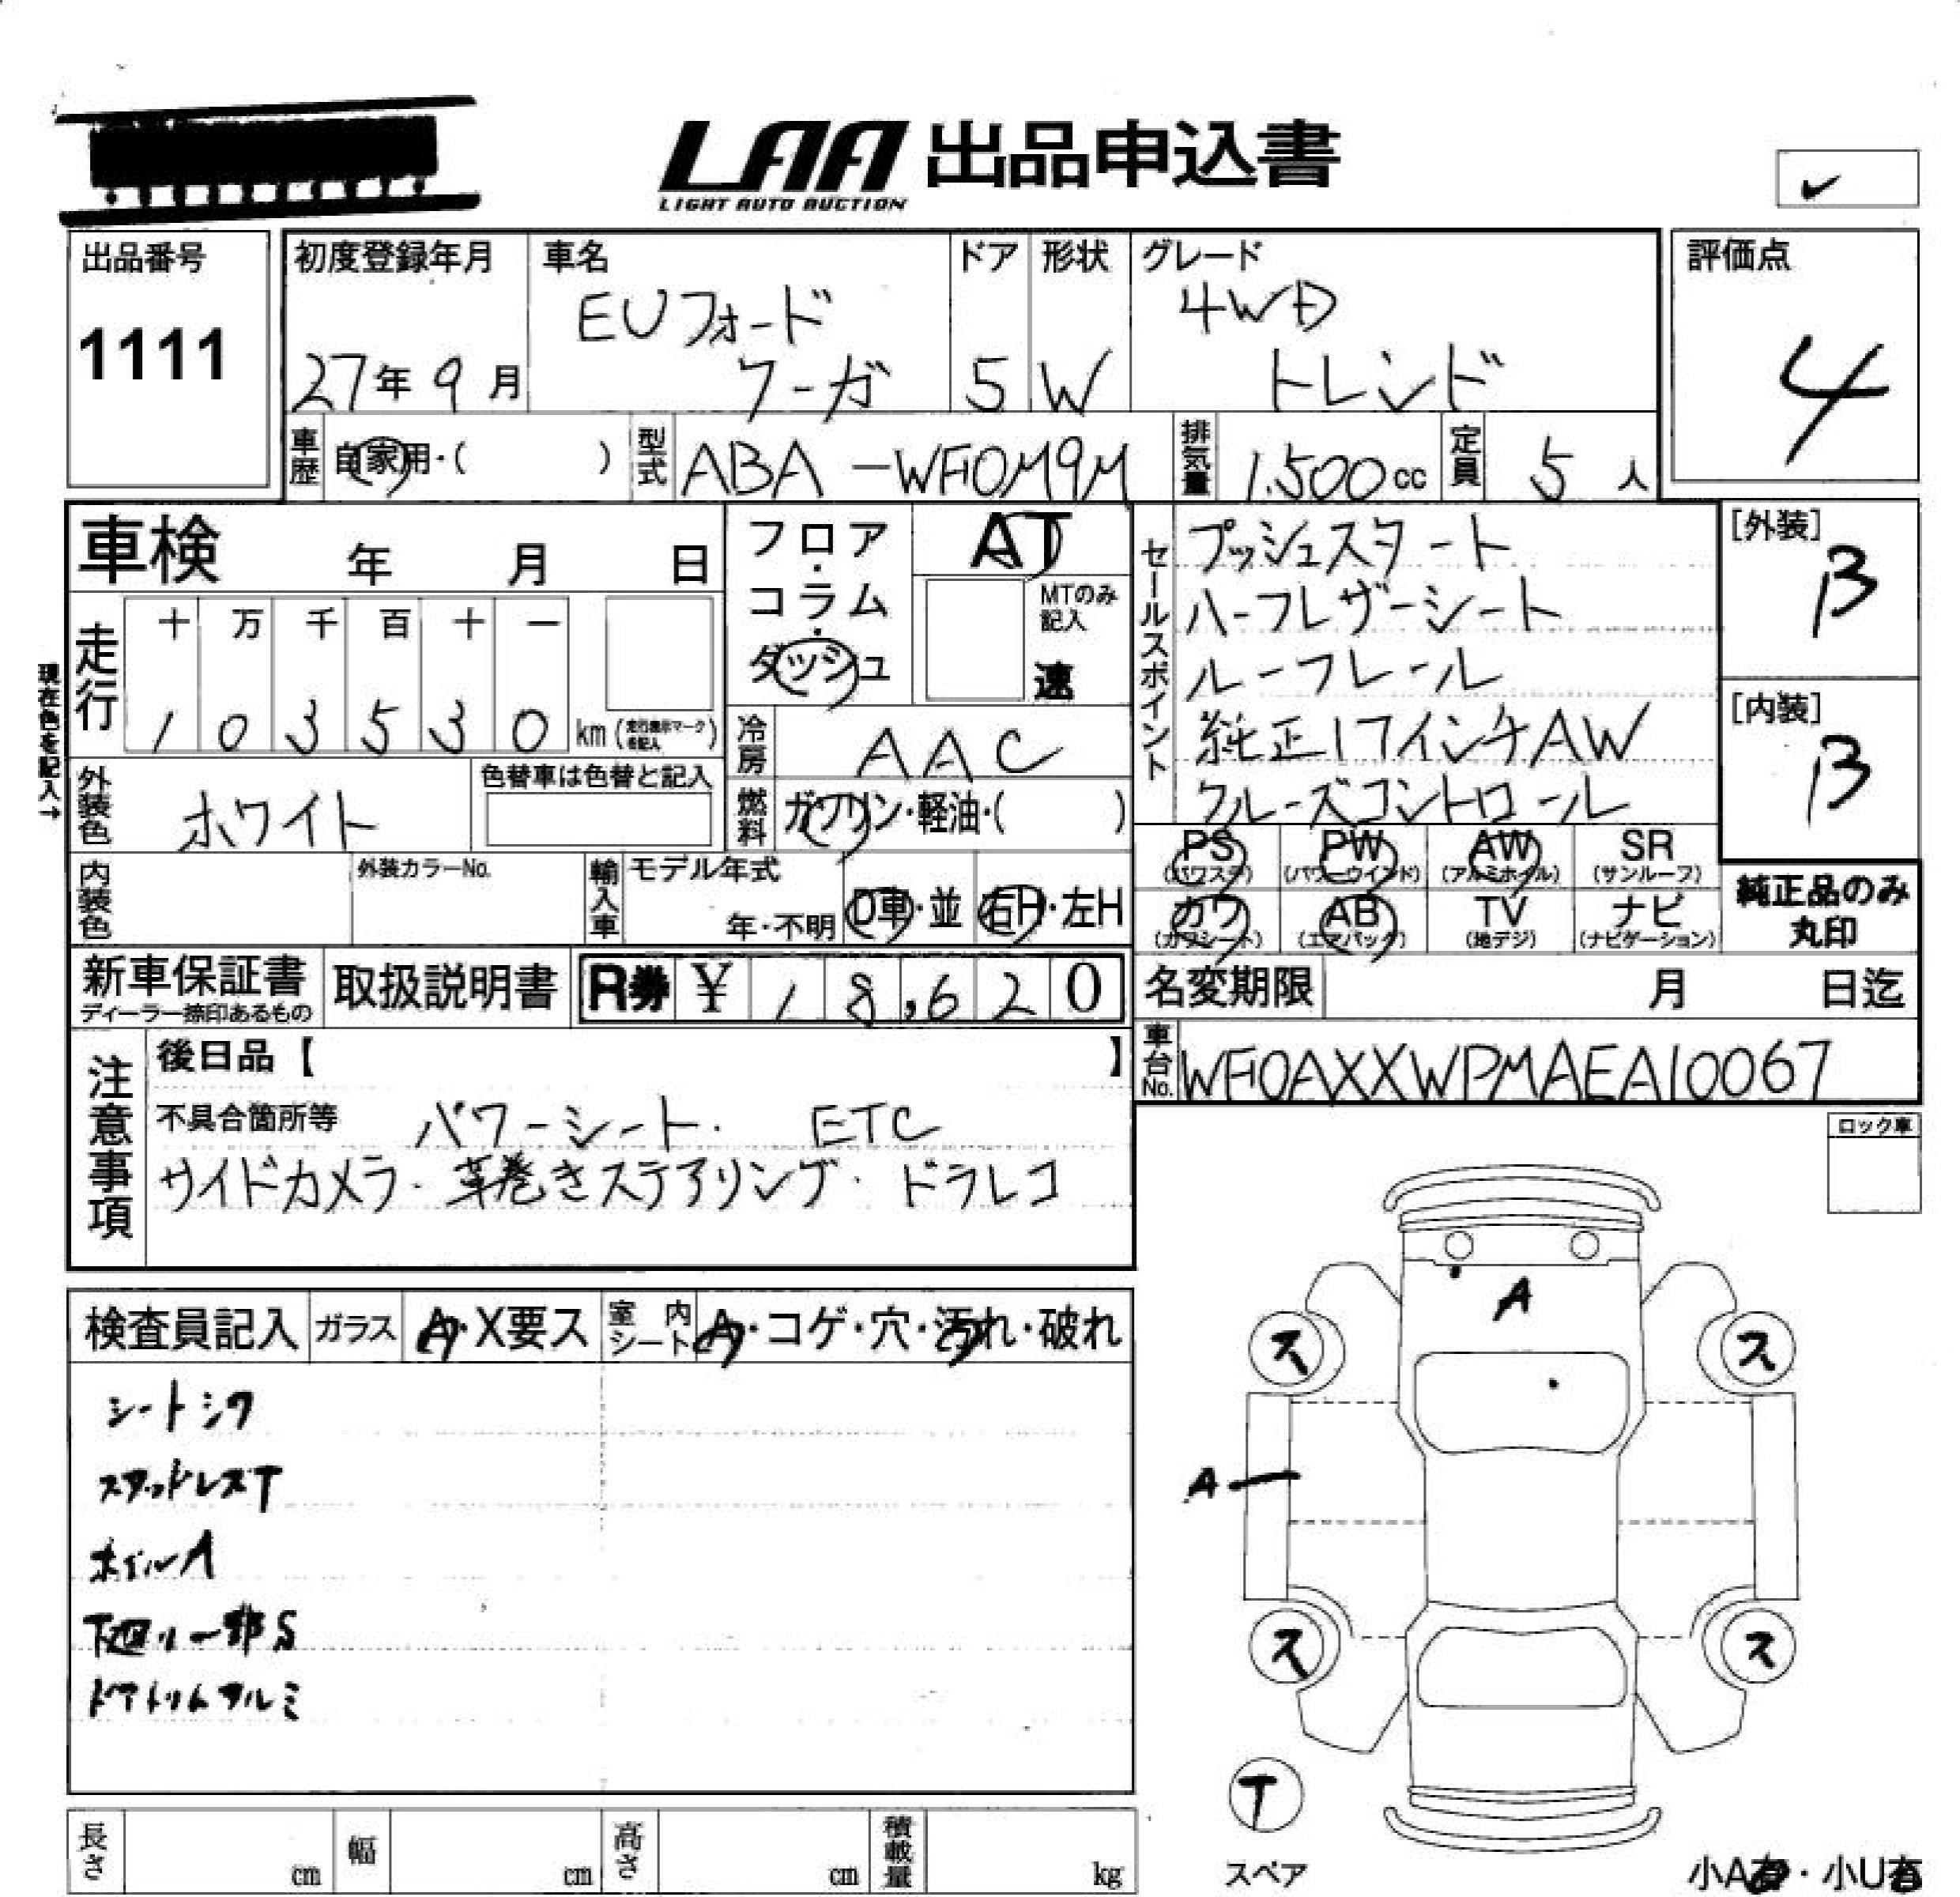 LAA 出品申込書
LIGHT AUTO AUCTION
出品番号
1111
初度登録年月
27年 9月
車名
EUフォード
クーガ
ドア
5
形状
W
グレード
4WD
トレンド
評価点
4
車歴 自家用・( )
型式 ABA-WF0M9M
排気量 1.500cc
定員 5人
車検 年 月 日
フロア・コラム・ダッシュ
AT
MTのみ記入
速
セールスポイント
プッシュスタート
ハーフレザーシート
ルーフレール
純正17インチAW
クルーズコントロール
[外装]
B
[内装]
B
現在色を記入→
走行
十 万 千 百 十 一
1 0 3 5 3 0 km
冷房 AAC
燃料 ガソリン・軽油・( )
外装色 ホワイト
色替車は色替と記入
内装色
外装カラーNo.
輸入車 モデル年式
年・不明
D車・並
右H・左H
PS (パワステ)
PW (パワーウインド)
AW (アルミホイル)
SR (サンルーフ)
カワ (カワシート)
AB (エアバック)
TV (地デジ)
ナビ (ナビゲーション)
純正品のみ
丸印
新車保証書
ディーラー捺印あるもの
取扱説明書
R券 ¥ 18,620
名変期限 月 日迄
車台No. WF0AXXWPMAEA10067
注意事項
後日品【 】
不具合箇所等 パワーシート. ETC
サイドカメラ・革巻きステアリング・ドラレコ
ロック車
検査員記入
ガラス A・X要ス
室内シート A・コゲ・穴・汚れ・破れ
シートシワ
スタッドレスT
ホイルA
下廻り一部S
ドアトリムアルミ
A
ス ス
A
ス ス
T
スペア
小A有・小U有
長さ cm
幅 cm
高さ cm
積載量 kg